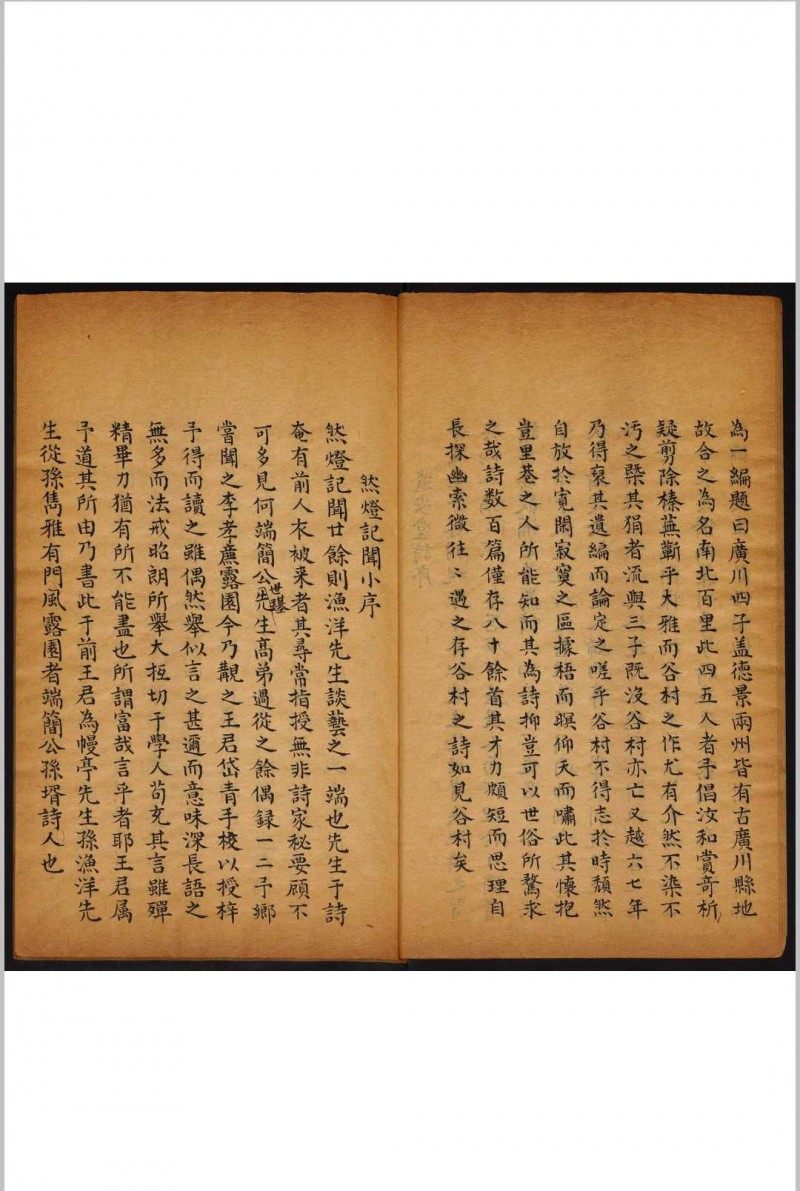 為一編題曰廣川四子蓋德景兩州皆有古廣川縣地
故合之為名南北百里此四五人者予倡汝和賞奇析
疑剪除榛蕪蘄乎大雅而谷村之作尤有介然不染不
汚之槩其狷者流與三子既沒谷村亦亡又越六七年
乃得裒其遺編而論定之嗟乎谷村不得志於時頹然
自放於寬閑寂寞之區據梧而暝仰天而嘯此其懷抱
豈里巷之人所能知而其為詩抑豈可以世俗所騖求
之哉詩数百篇僅存八十餘首其才力頗短而思理自
長探幽索微往〻遇之存谷村之詩如見谷村矣
然燈記聞小序
然燈記聞廿餘則漁洋先生談藝之一端也先生于詩
奄有前人衣被來者其尋常指授無非詩家秘要顧不
可多見何端簡公世璂先生高弟過從之餘偶録一二予鄉
嘗聞之李孝廉露園今乃覯之王君岱青手校以授梓
予得而讀之雖偶然舉似言之甚邇而意味深長語之
無多而法戒昭朗所舉大抵切于學人苟充其言雖殫
精畢力猶有所不能盡也所謂富哉言乎者耶王君属
予道其所由乃書此于前王君為幔亭先生孫漁洋先
生從孫雋雅有門風露園者端簡公孫壻詩人也